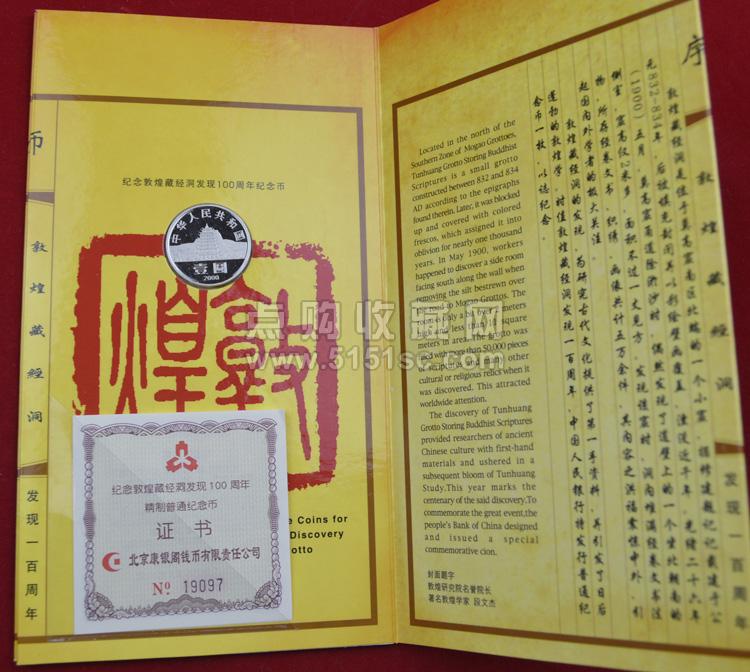 币
敦煌藏經洞
发现一百周年
纪念敦煌藏经洞发现100周年纪念币
中华人民共和国
壹圆
2000
敦煌
e Coins for
Discovery
otto
纪念敦煌藏经洞发现100周年
精制普通纪念币
证书
北京康银阁钱币有限责任公司
No 19097
点购收藏网
www.5151sc.com
Located in the north of the
Southern Zone of Mogao Grottoes,
Tunhuang Grotto Storing Buddhist
Scriptures is a small grotto
constructed between 832 and 834
AD according to the epigraphs
found therein. Later, it was blocked
up and covered with colored
frescos, which assigned it into
oblivion for nearly one thousand
years. In May 1900, workers
happened to discover a side room
facing south along the wall when
removing the silt bestrewn over
the road to Mogao Grottos. The
room is only a bit over 2 meters
high and less than square
meters in area. The grotto was
filled with more than 50,000 pieces
of scriptures and many other
cultural or religious relics when it
was discovered. This attracted
worldwide attention.
The discovery of Tunhuang
Grotto Storing Buddhist Scriptures
provided researchers of ancient
Chinese culture with first-hand
materials and ushered in a
subsequent bloom of Tunhuang
Study. This year marks the
centenary of the said discovery. To
commemorate the great event, the
people's Bank of China designed
and issued a special
commemorative cion.
封面题字
敦煌研究院名誉院长
著名敦煌学家 段文杰
序
敦煌藏經洞
发现一百周年
敦煌藏经洞是位于莫高窟南区北端的一个小窟,据修建题记记载建于公
元832-834年,后被填充封闭并以彩绘壁画覆盖,湮没近千年。光绪二十六年
(1900)五月,莫高窟甬道除淤沙时,偶然发现了甬壁上的一个坐北朝南的
侧室,窟高仅2米多,面积不过一丈见方,发现该窟时,洞内堆满经卷文书注
物,所存经卷文书、织绣、画像共计五万余件,其内容之洪福震惊中外,引
起国内外学者的极大关注。
敦煌藏经洞的发现,为研究古代文化提供了第一手资料,并引发了日后
蓬勃的敦煌学,时值敦煌藏经洞发现一百周年,中国人民银行特发行普通纪
念币一枚,以志纪念。